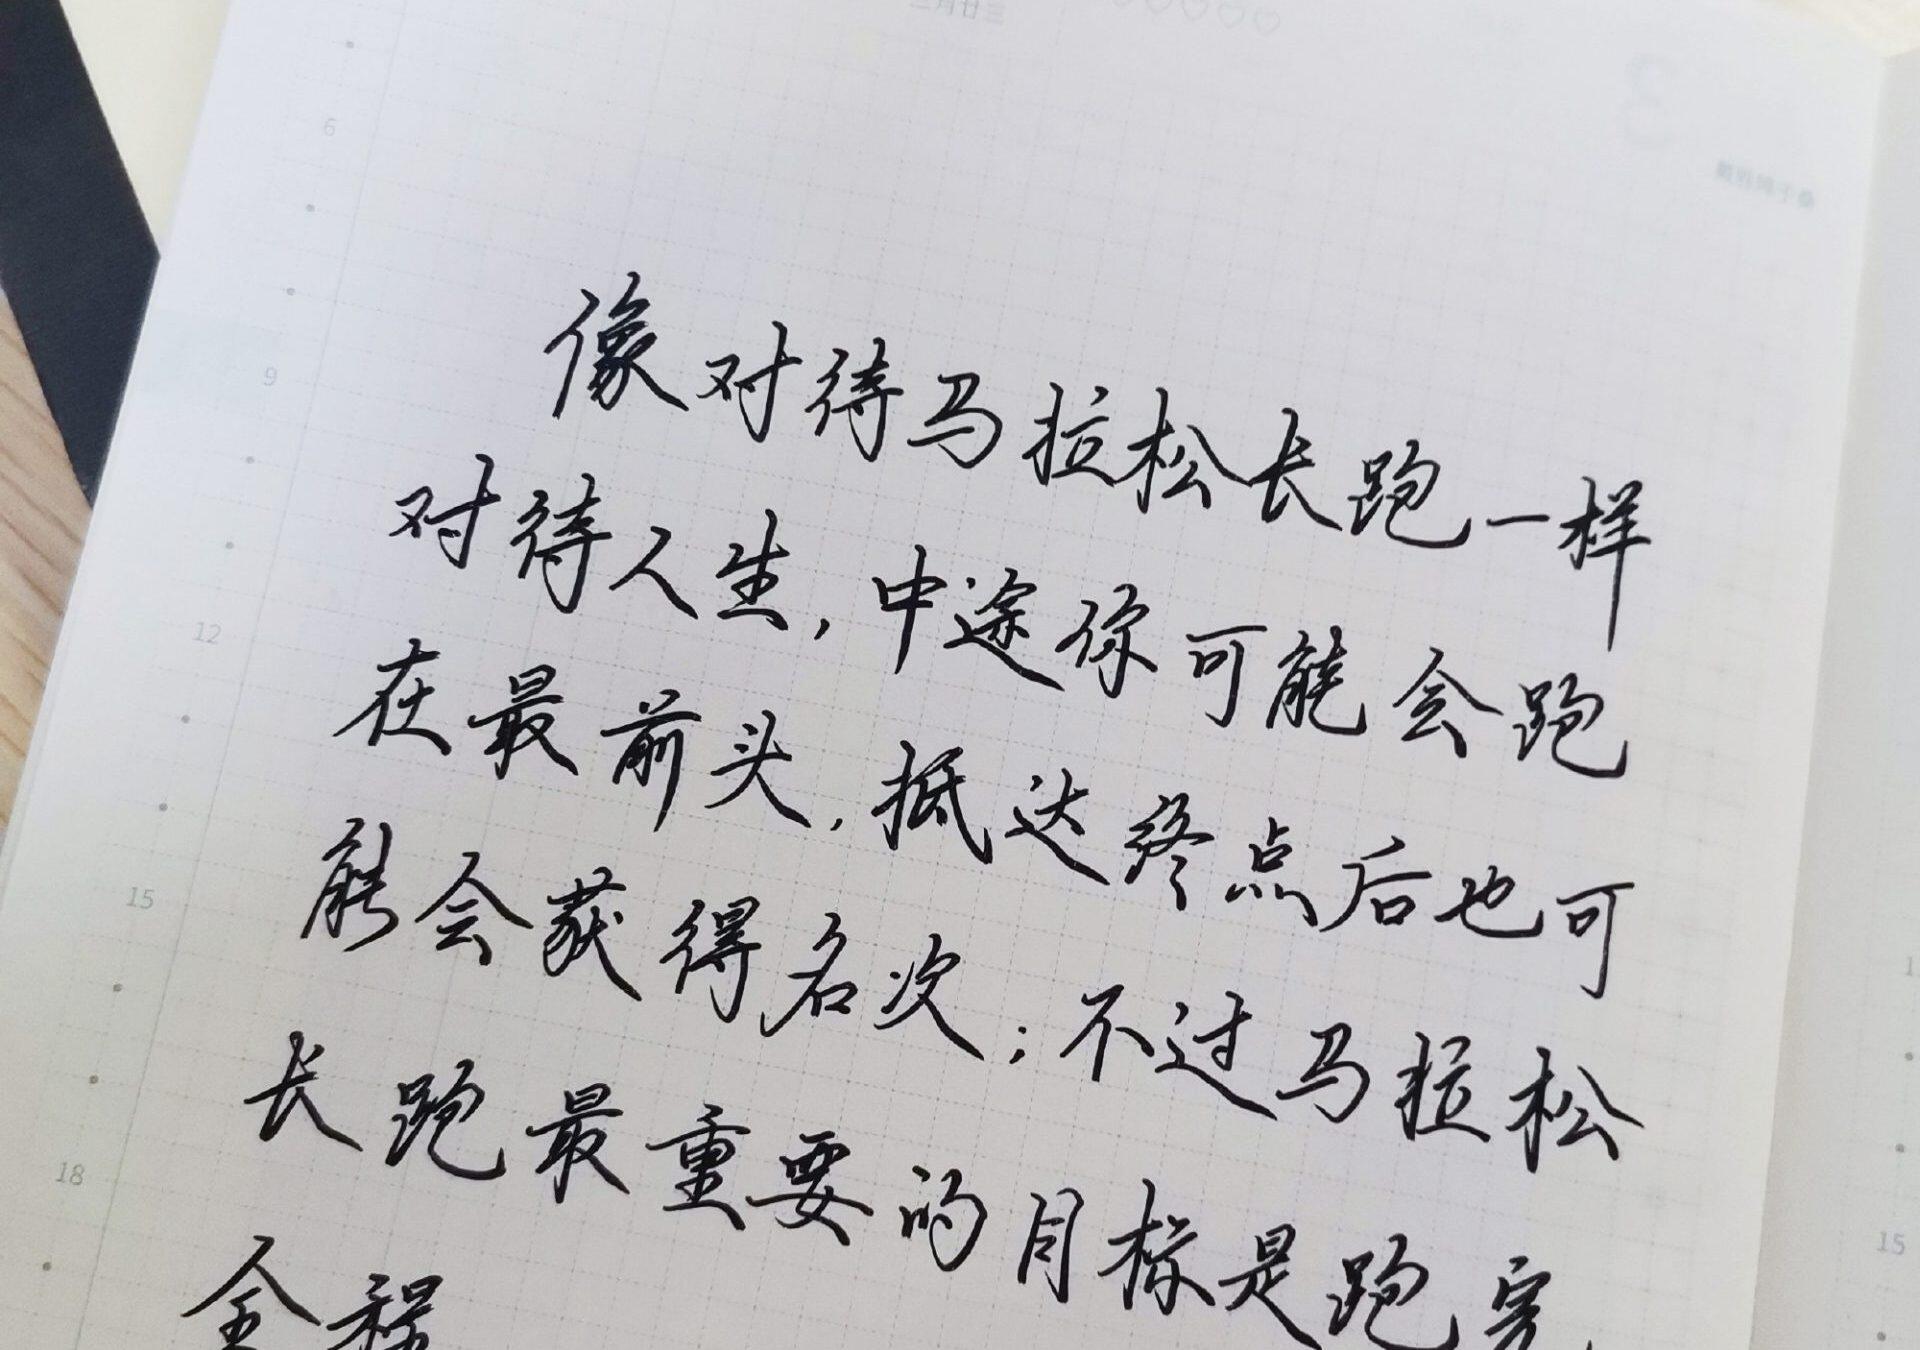 三月廿三
3
6
9
12
15
18
像对待马拉松长跑一样
对待人生,中途你可能会跑
在最前头,抵达终点后也可
能会获得名次;不过马拉松
长跑最重要的目标是跑完
全程
15